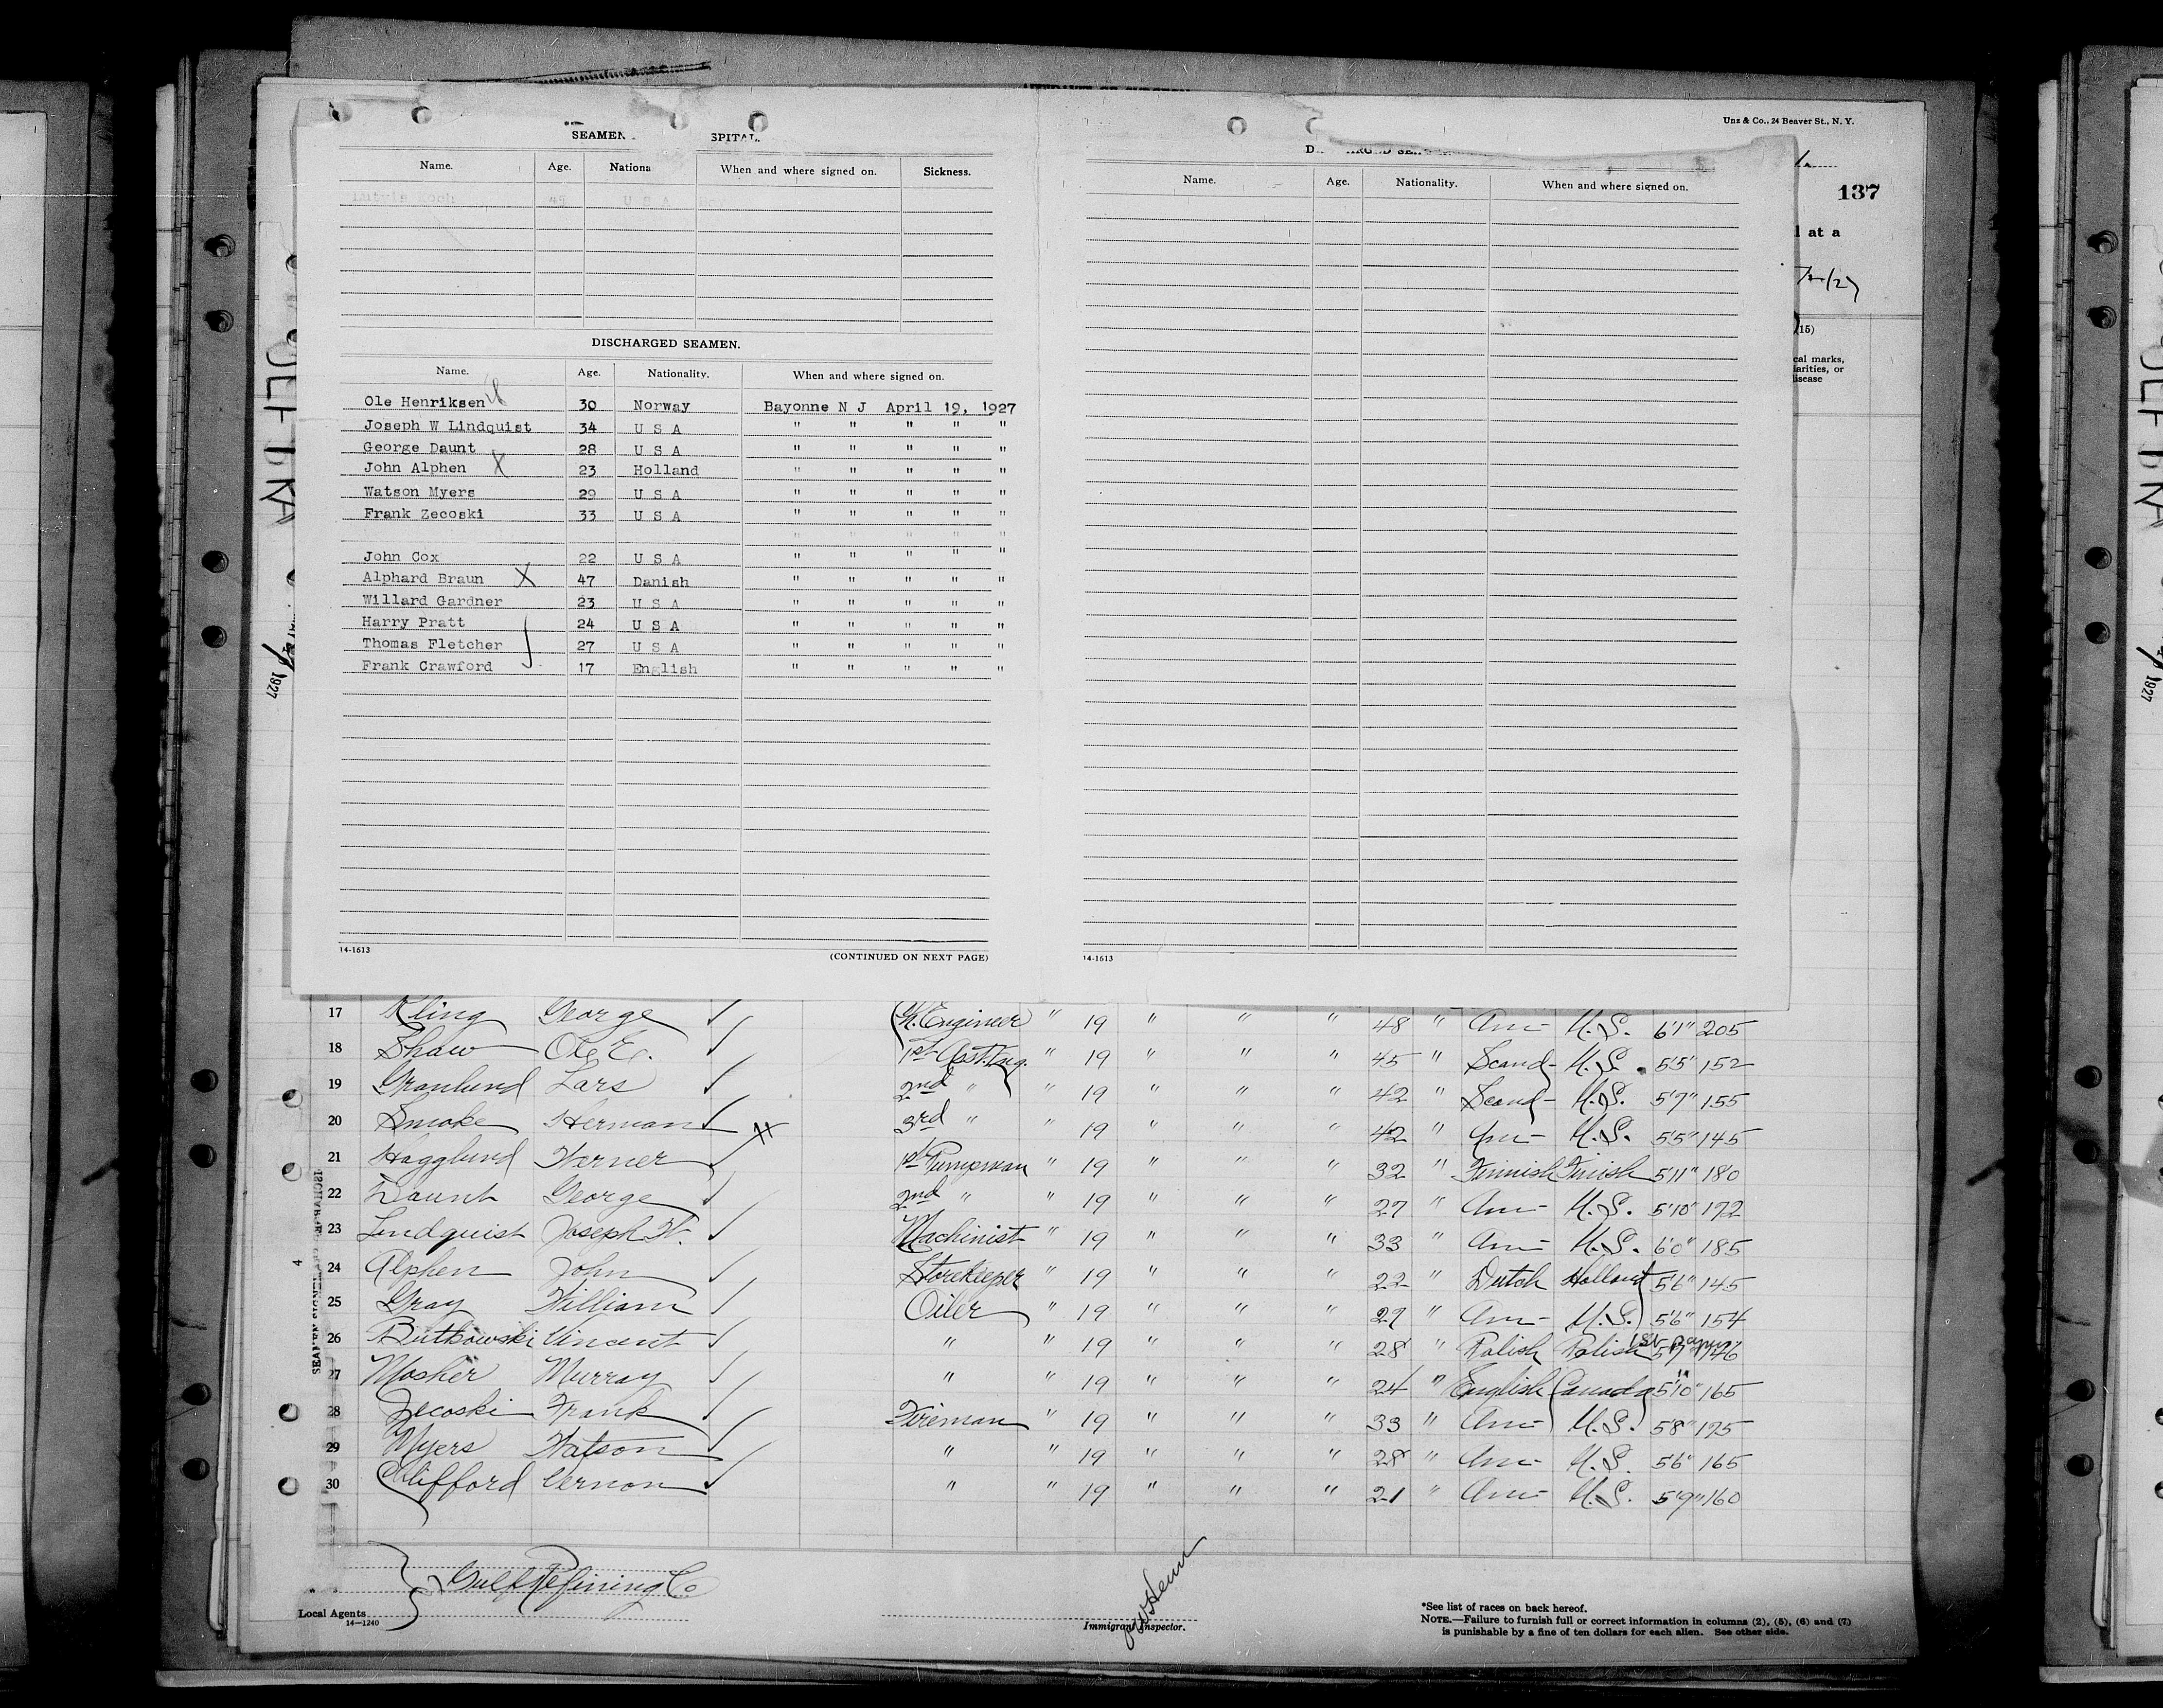 Unz & Co., 24 Beaver St., N. Y.
137
l at a
(15)
cal marks,
larities, or
disease
SEAMEN SPITAL
Name. Age. Nationa When and where signed on. Sickness.
Koch 49 U S A
DISCHARGED SEAMEN.
Name. Age. Nationality. When and where signed on.
Ole Henriksen 30 Norway Bayonne N J April 19, 1927
Joseph W Lindquist 34 U S A " " " " "
George Daunt 28 U S A " " " " "
John Alphen X 23 Holland " " " " "
Watson Myers 29 U S A " " " " "
Frank Zecoski 33 U S A " " " " "
" " " " "
John Cox 22 U S A " " " " "
Alphard Braun X 47 Danish " " " " "
Willard Gardner 23 U S A " " " " "
Harry Pratt 24 U S A " " " " "
Thomas Fletcher 27 U S A " " " " "
Frank Crawford 17 English " " " " "
14-1613 (CONTINUED ON NEXT PAGE)
Name. Age. Nationality. When and where signed on.
14-1613
1927
17 Kling George Ch. Engineer " 19 " " " 48 " Am- U.S. 6'1" 205
18 Shaw Ole E. 1st Asst. Eng. " 19 " " " 45 " Scand- U.S. 5'5" 152
19 Granlund Lars 2nd " " 19 " " " 42 " Scand- U.S. 5'7" 155
20 Smoke Herman 3rd " " 19 " " " 42 " Am- U.S. 5'5" 145
21 Hagglund Werner 1st Pumpman " 19 " " " 32 " Finnish Finish 5'11" 180
22 Daunt George 2nd " " 19 " " " 27 " Am- U.S. 5'10" 172
23 Lindquist Joseph W. Machinist " 19 " " " 33 " Am- U.S. 6'0" 185
24 Alphen John Storekeeper " 19 " " " 22 " Dutch Holland 5'6" 145
25 Gray William Oiler " 19 " " " 27 " Am- U.S. 5'6" 154
26 Butkowski Vincent " " 19 " " " 28 " Polish Polish 5'7" 146
27 Mosher Murray " " 19 " " " 24 " English Canada 5'10" 165
28 Zecoski Frank Fireman " 19 " " " 33 " Am- U.S. 5'8" 175
29 Myers Watson " " 19 " " " 28 " Am- U.S. 5'6" 165
30 Clifford Vernon " " 19 " " " 21 " Am- U.S. 5'9" 160
4
Gulf Refining Co
Local Agents
14—1240
Immigrant Inspector.
*See list of races on back hereof.
NOTE.—Failure to furnish full or correct information in columns (2), (5), (6) and (7)
is punishable by a fine of ten dollars for each alien. See other side.
1927